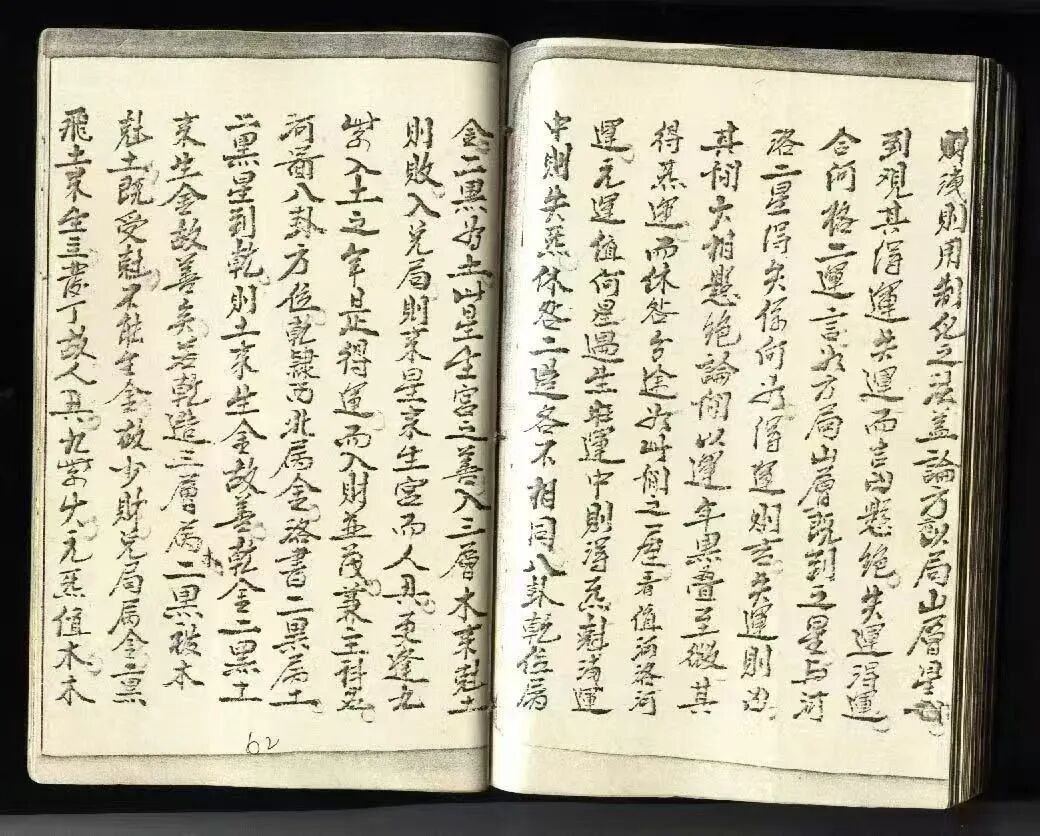 後則用制化之法蓋論方以局山層星
到觀其得運失運而吉凶懸絶失運得運
合何格二運言如方局山層既到之星与河
洛二星得失係何为得運則吉失運則凶
其間大相懸絶論間以運年黑疊至微其
得炁運而休咎分途於此間之屋看值河洛河
運元運值何星遇生旺運中則得炁剋洩運
中則失炁休咎二途各不相同八卦乾位属
金二黑为土此星生宮之善入三層木来剋土
則敗入兌局則来星来生宮而人興更逢九
紫入土之年是得運而入財並茂兼主科名
河圖八卦方位乾隸西北属金洛書二黑属土
二黑星到乾則土来生金故善乾金二黑土
来生金故善矣若乾造三層属木二黑被木
剋土既受剋不能生金故少財兌局属金二黑
飛土来生三丁故人興九紫火元炁值木木
62